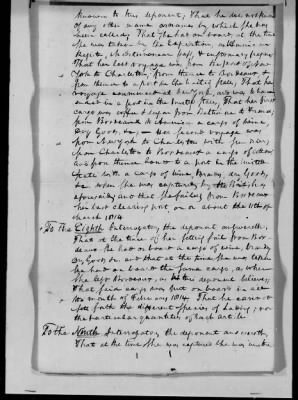 known to this deponent, That he does not know
of any other name or names by which she has
been called, That she had on board, at the time
she was taken by the Capturing
Register
That her last voyage was from the port of New
York to Charleston, from thence to Bordeaux &
from thence to a port in the United States, That her
voyage commenced at New York, and was to have
ended in a port in the United States, That her first
cargo was
from Bordeaux a cargo of wine,
Dry Goods, &c,— Her second voyage was
from New York to Charleston with
from Charleston to Bordeaux a cargo of cotton
and from thence bound to a port in the United
States with a cargo of wine, Brandy, dry Goods,
&c. when she was captured by the British as
aforesaid, and that she sailed from Bordeaux
her clearing port, on or about the 11th of
March 1814.
To the Eighth Interrogatory the deponent answereth,
That at the time of her setting sail from Bor-
deaux She had on board a cargo of wine, brandy,
Dry Goods, &c. and that at the time she was taken
she had on board the same cargo, as when
she left Bordeaux, as he the deponent believes,
That said cargo was put on board in
the month of February 1814. That he cannot
set forth the different species of lading, nor
the particular quantities of each article
To the Ninth Interrogatory the deponent answereth,
That at the time she was captured she was under